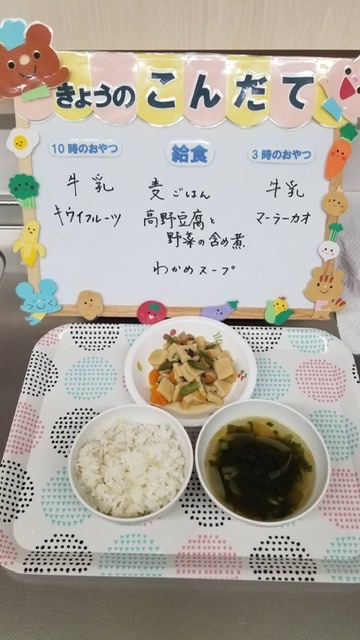 きょうのこんだて
10時のおやつ
牛乳
キウイフルーツ
給食
麦ごはん
高野豆腐と
野菜の含め煮
わかめスープ
3時のおやつ
牛乳
マーラーカオ